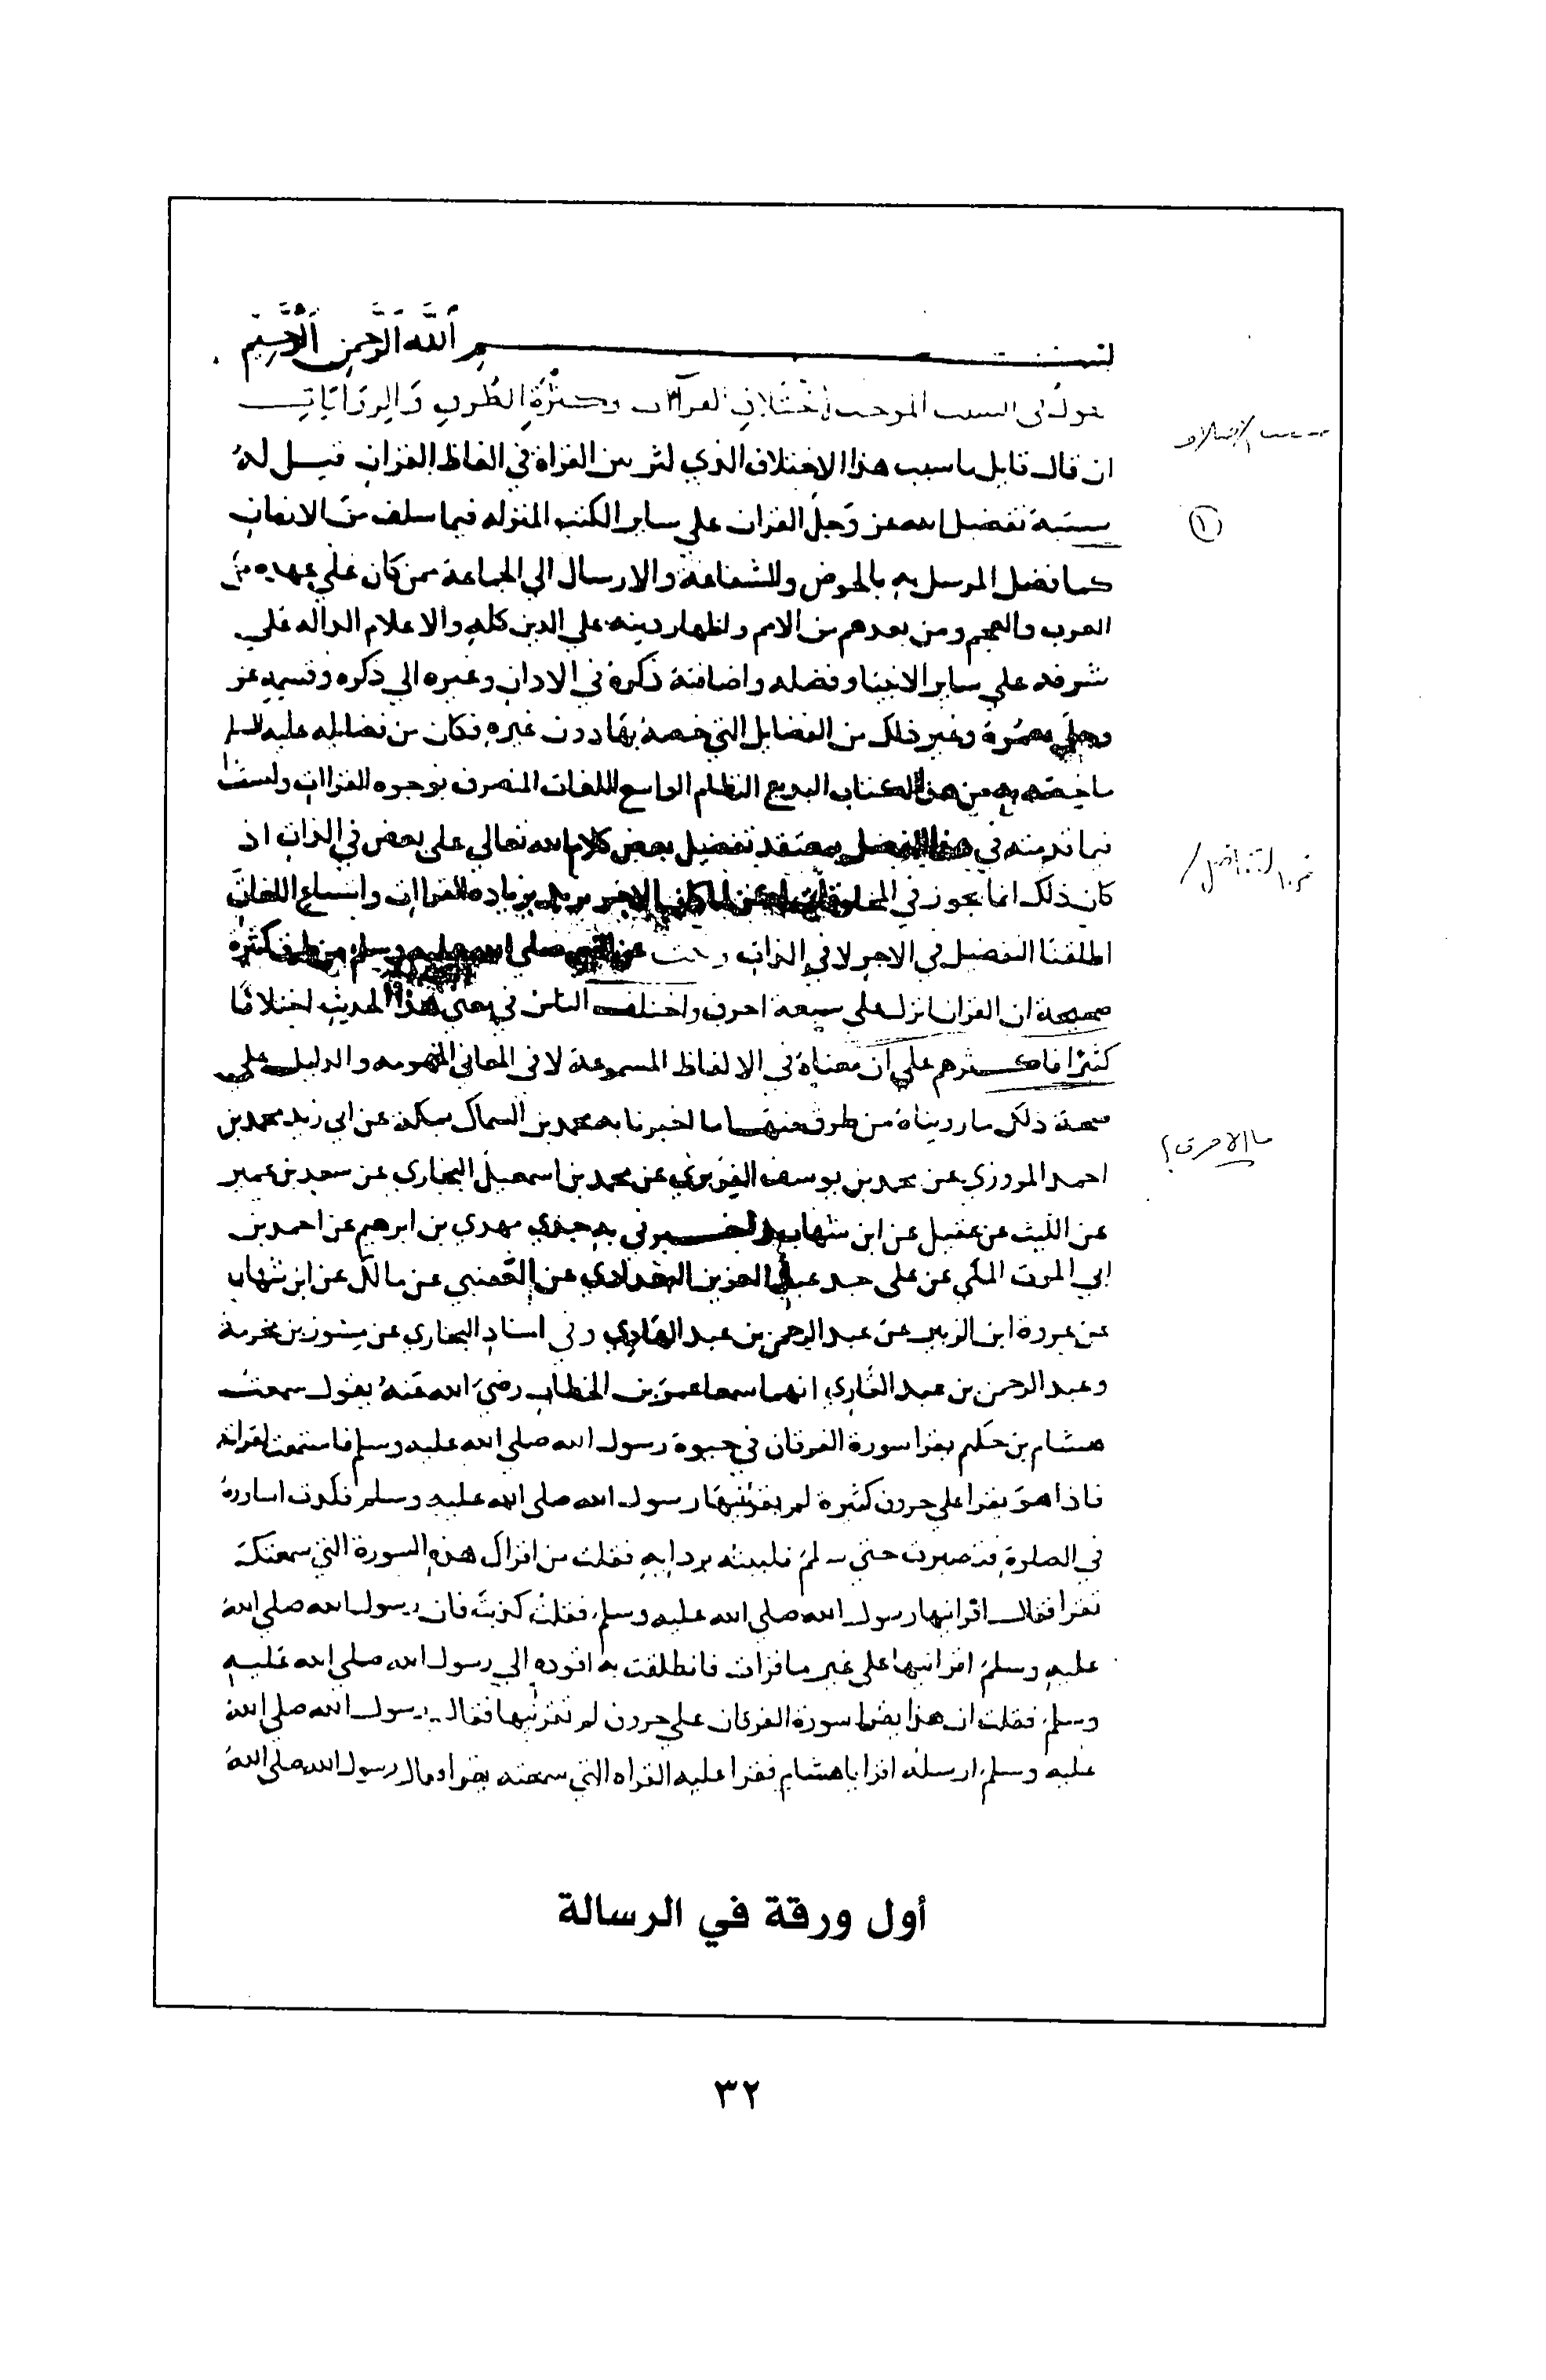 بسم الله الرحمن الرحيم
القول في السبب الموجب لاختلاف القراات وكثرة الطرق والروايات
ان قال قايل ما سبب هذا الاختلاف الذي كثر بين القراة في الفاظ القران قيل له
سببه تفضيل الله عز وجل القران على ساير الكتب المنزله فيما سلف من الازمان
كما فضل المرسل به بالحوض والشفاعة والارسال الي الجماعة ممن كان علي عهده من
العرب والعجم ومن بعدهم من الامم واظهار دينه علي الدين كله والاعلام الداله علي
شرفه علي ساير الانبيا وفضله واضافة ذكره في الاذان وغيره الي ذكره وقسمه عز
وجل بعمره وغير ذلك من الفضايل التي خصه بها دون غيره فكان من فضايله عليه السلم
ما خصه به من هذا الكتاب البديع النظام الواسع اللغات المتصرف بوجوه القراات ولسنا
فيما قدمنه في هذا الفصل بمعتقد تفضيل بعض كلام الله تعالي على بعض في الذات اذ
كان ذلك انما يجوز في المخلوقات بزيادة القراات واتساع اللغات
اطلقنا التفضيل في الاجر لا في الذات عن النبي صلى الله عليه وسلم من طرق كثيرة
صحيحة ان القران انزل على سبعة احرف واختلف الناس في معنى هذا الحديث اختلافا
كثيرا فاكثرهم علي ان معناه في الالفاظ المسموعة لا في المعاني المفهومه والدليل علي
صحة ذلك ما رويناه من طرق منها ما اخبرنا به محمد بن السماك بمكة عن ابي زيد محمد بن
احمد المروزي عن محمد بن يوسف الفربري عن محمد بن اسمعيل البخاري عن سعيد بن عفير
عن الليث عن عقيل عن ابن شهاب واخبرني به جدي مهدي بن ابرهيم عن احمد بن
ابي الموت المكي عن علي بن عبد العزيز البغدادي عن القعنبي عن مالك عن ابن شهاب
عن عروة ابن الزبير عن عبد الرحمن بن عبد القاري وفي اسناد البخاري عن مسور بن مخرمة
وعبد الرحمن بن عبد القاري انهما سمعا عمر بن الخطاب رضي الله عنه يقول سمعت
هشام بن حكيم يقرا سورة الفرقان في حيوة رسول الله صلى الله عليه وسلم فاستمعت لقراته
فاذا هو يقرا علي حروف كثيرة لم يقرئنيها رسول الله صلى الله عليه وسلم فكدت اساوره
في الصلوة فتصبرت حتى سلم فلببته بردايه فقلت من اقراك هذه السورة التي سمعتك
تقرا فقال اقرانيها رسول الله صلى الله عليه وسلم فقلت كذبت فان رسول الله صلى الله
عليه وسلم اقرانيها على غير ما قرات فانطلقت به اقوده الي رسول الله صلى الله عليه
وسلم فقلت ان هذا يقرا سورة الفرقان علي حروف لم تقرئنيها فقال رسول الله صلى الله
عليه وسلم ارسله اقرا يا هشام فقرا عليه القراه التي سمعته يقرا فقال رسول الله صلى الله
سبب الاختلاف
١
ما الاحرف؟
أول ورقة في الرسالة
٣٢